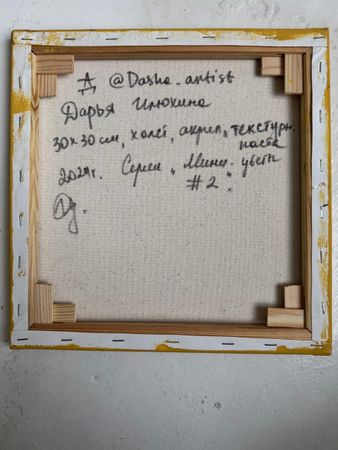 Д @Dasha_artist
Дарья Илюхина
30х30см, холст, акрил, текстурн. паста
2024г. Серия „Мини. цветы
#2".